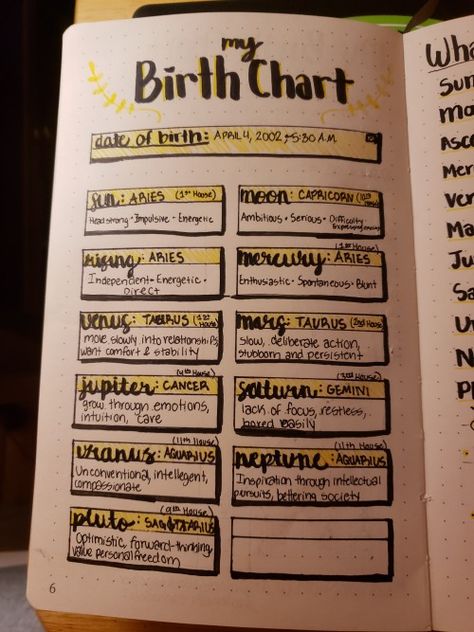 my
Birth Chart
date of birth: APRIL 4, 2002, 5:30 A.M.
sun: ARIES (1st House)
Headstrong • Impulsive • Energetic
moon: CAPRICORN (10th House)
Ambitious • Serious • Difficulty
Expressing
rising: ARIES
Independent • Energetic •
Direct
(1st House)
mercury: ARIES
Enthusiastic • Spontaneous • Blunt
venus: TAURUS (1st House)
move slowly into relationships,
want comfort & stability
mars: TAURUS (2nd House)
slow, deliberate action,
stubborn and persistent
(4th House)
jupiter: CANCER
grow through emotions,
intuition, care
(3rd House)
saturn: GEMINI
lack of focus, restless,
bored easily
(11th House)
uranus: AQUARIUS
Unconventional, intellegent,
compassionate
(11th House)
neptune: AQUARIUS
Inspiration through intellectual
pursuits, bettering society
(9th House)
pluto: SAGITTARIUS
Optimistic, forward-thinking,
value personal freedom
6
Wha
Sun
mo
Asc
Mer
Ver
Ma
Ju
Sa
Ur
N
Pl